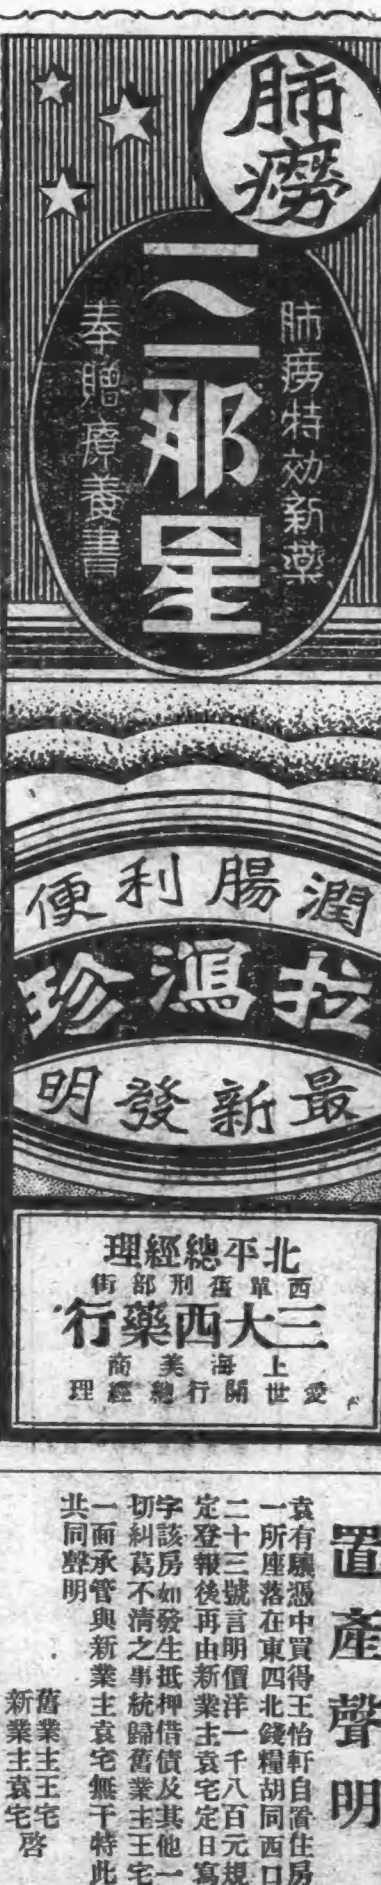 肺癆
肺癆特効新藥
三那星
奉贈療養書
潤腸利便
拉瀉珍
最新發明
北平總經理
西單舊刑部街
三大西藥行
上海美商
愛世開行總經理
置產聲明
袁有驥憑中買得王怡軒自置住房
一所座落在東四北錢糧胡同西口
二十三號言明價洋一千八百元規
定登報後再由新業主袁宅定日寫
字該房如發生抵押借債及其他一
切糾葛不清之事統歸舊業主王宅
一面承管與新業主袁宅無干特此
共同聲明
舊業主王宅
新業主袁宅啓